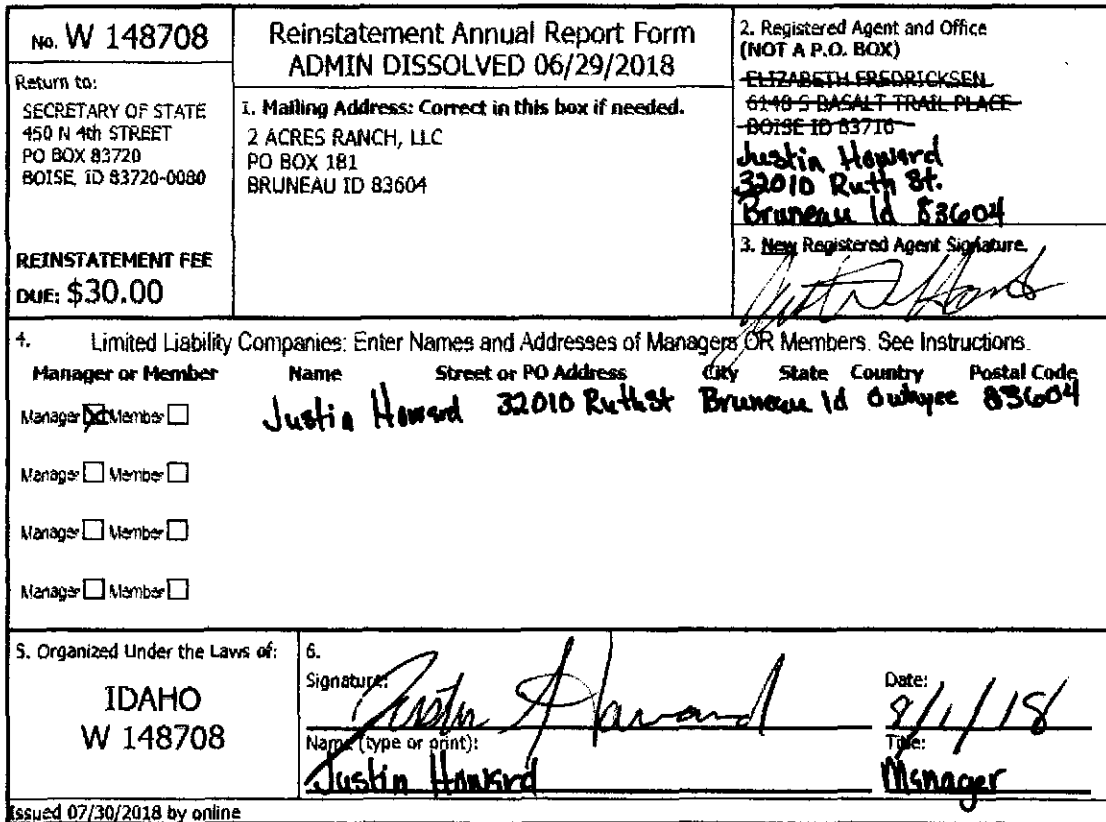 No. W 148708
Return to:
SECRETARY OF STATE
450 N 4th STREET
PO BOX 83720
BOISE, ID 83720-0080
REINSTATEMENT FEE
DUE: $30.00
Reinstatement Annual Report Form
ADMIN DISSOLVED 06/29/2018
1. Mailing Address: Correct in this box if needed.
2 ACRES RANCH, LLC
PO BOX 181
BRUNEAU ID 83604
2. Registered Agent and Office
(NOT A P.O. BOX)
ELIZABETH FREDRICKSEN
6148 S BASALT TRAIL PLACE
BOISE ID 83716
Justin Howard
32010 Ruth St.
Bruneau Id 83604
3. New Registered Agent Signature.
4. Limited Liability Companies: Enter Names and Addresses of Managers OR Members. See Instructions.
Manager or Member Name Street or PO Address City State Country Postal Code
Manager Member Justin Howard 32010 Ruth St Bruneau Id Owhyee 83604
Manager Member
Manager Member
Manager Member
5. Organized Under the Laws of:
IDAHO
W 148708
6.
Signature: Justin Howard
Date: 8/1/18
Name (type or print):
Justin Howard
Title:
Manager
Issued 07/30/2018 by online